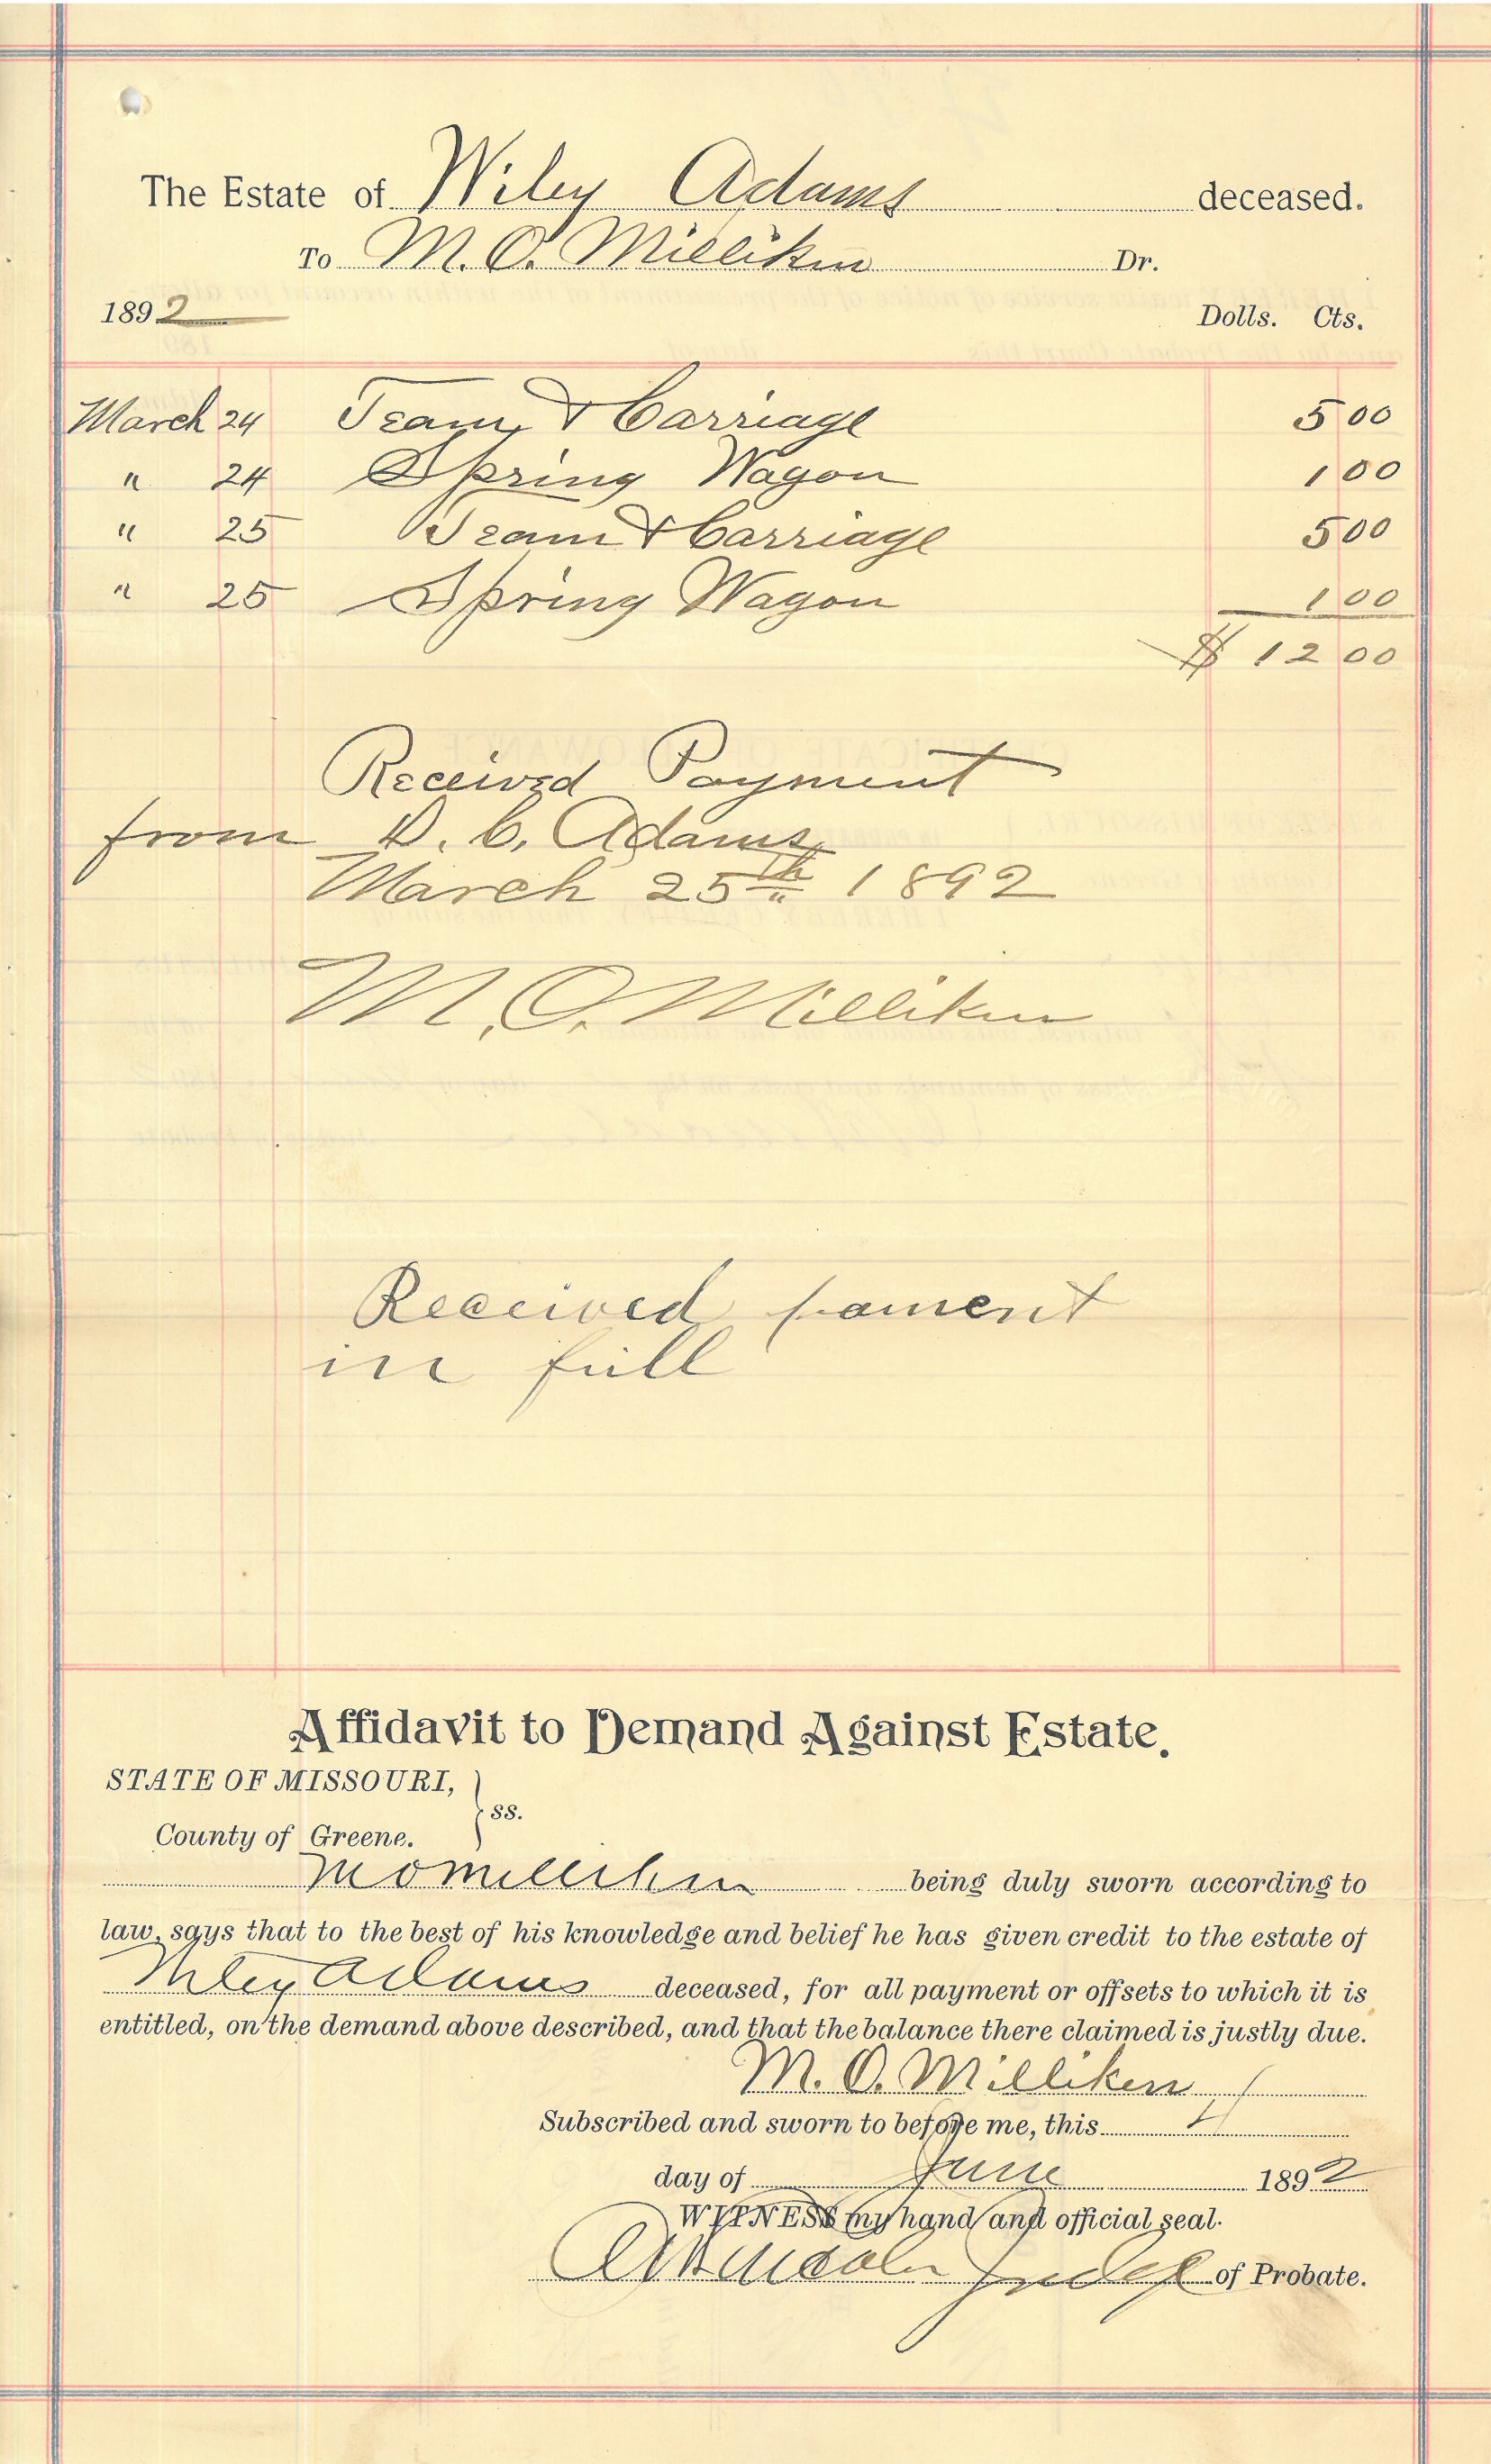 The Estate of Wiley Adams deceased.
To M. O. Milliken Dr.
1892 Dolls. Cts.
March 24 Team & Carriage 5 00
" 24 Spring Wagon 1 00
" 25 Team & Carriage 5 00
" 25 Spring Wagon 1 00
$ 12 00
Received Payment
from D. C. Adams
March 25th 1892
M. O. Milliken
Received pament
in full
Affidavit to Demand Against Estate.
STATE OF MISSOURI,
ss.
County of Greene.
M O Milliken being duly sworn according to
law, says that to the best of his knowledge and belief he has given credit to the estate of
Wiley Adams deceased, for all payment or offsets to which it is
entitled, on the demand above described, and that the balance there claimed is justly due.
M. O. Milliken
Subscribed and sworn to before me, this 4
day of June 1892
WITNESS my hand and official seal.
Judge of Probate.